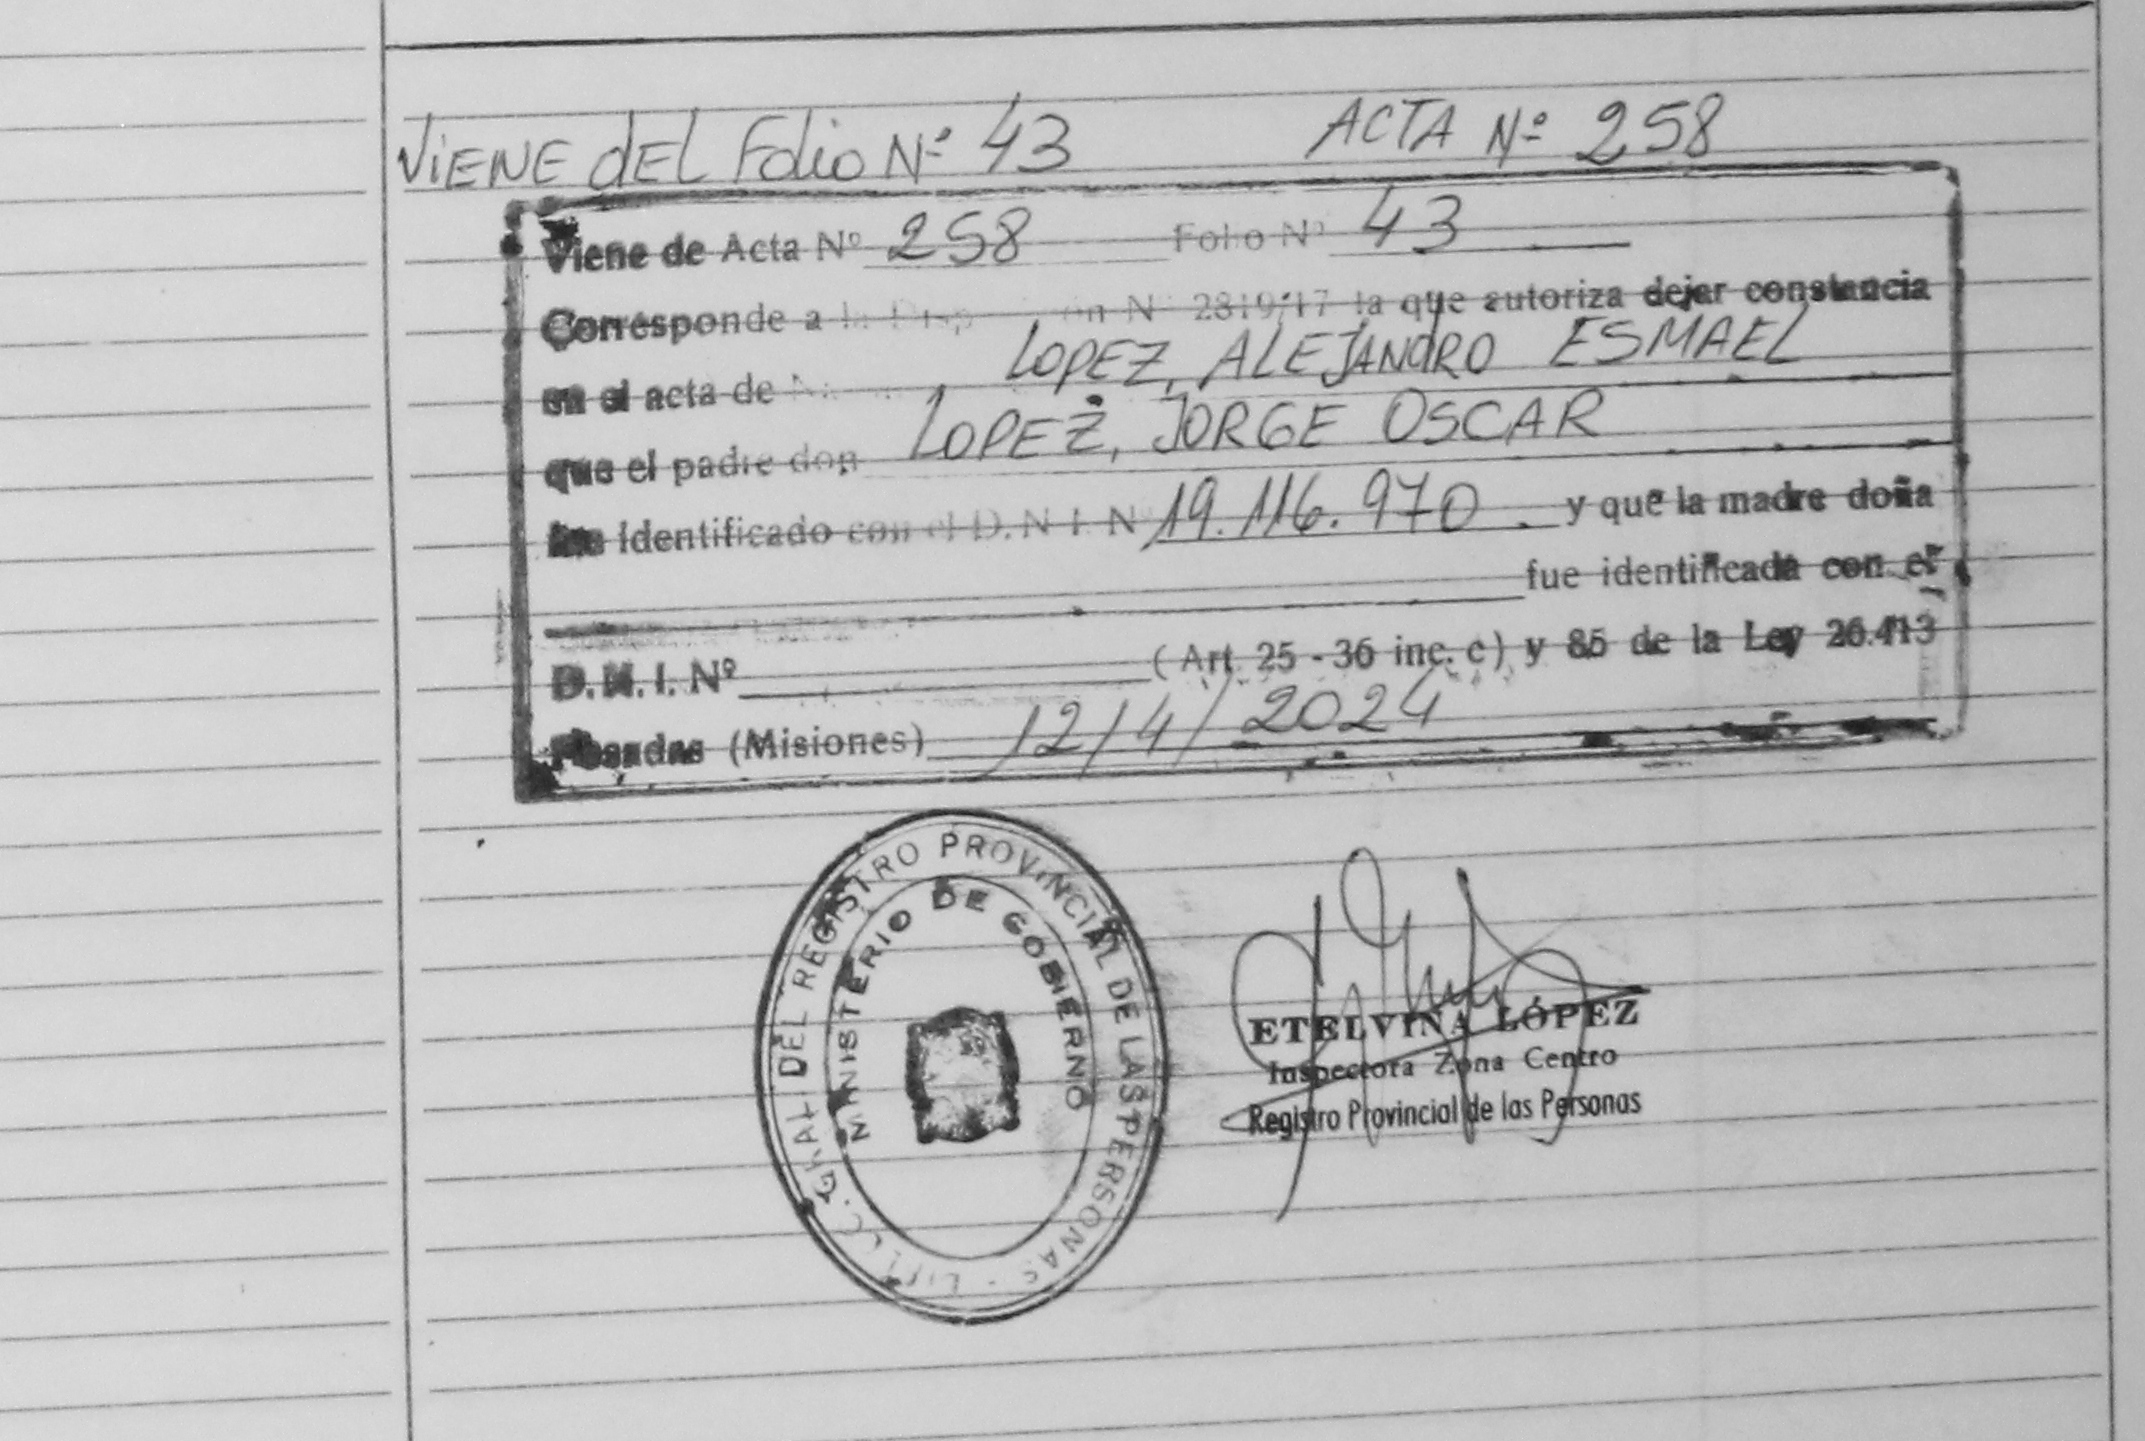 VIENE DEL Folio Nº 43 ACTA Nº 258
Viene de Acta Nº 258 Folio Nº 43
Corresponde a la Nº 2819/17 la que autoriza dejar constancia
en el acta de LOPEZ, ALEJANDRO ESMAEL
que el padre don LOPEZ, JORGE OSCAR
identificado con el D.N.I. Nº 19.116.970. y que la madre doña
fue identificada con el
D.N.I. Nº (Art. 25 - 36 inc. c) y 85 de la Ley 26.413
Posadas (Misiones) 12/4/2024
GRAL DEL REGISTRO PROVINCIAL DE LAS PERSONAS
MINISTERIO DE GOBIERNO
ETELVINA LÓPEZ
Inspectora Zona Centro
Registro Provincial de las Personas